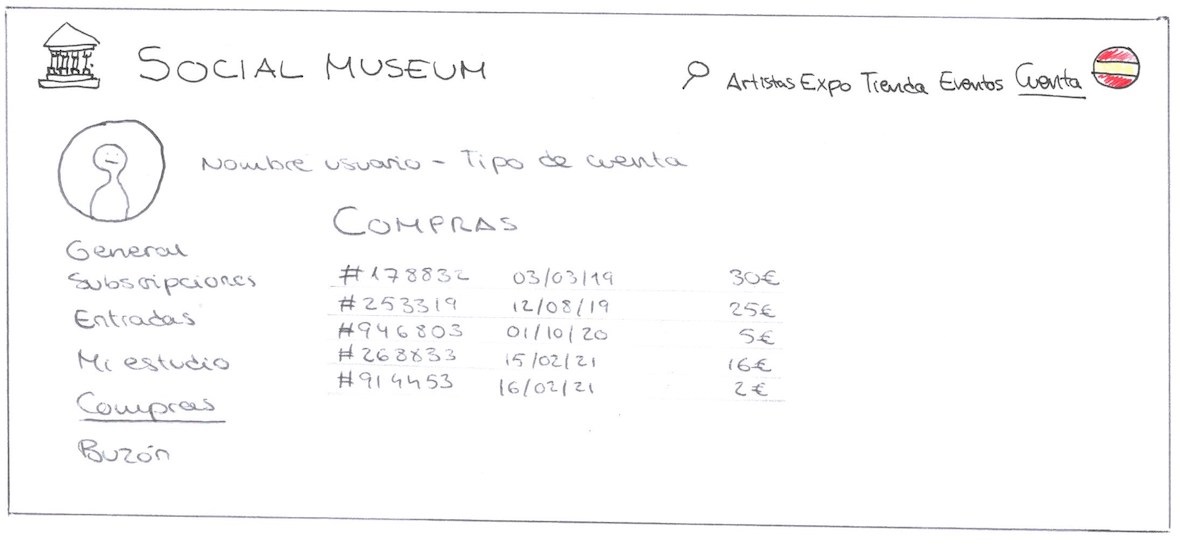 SOCIAL MUSEUM
Artistas Expo Tienda Eventos Cuenta
Nombre usuario - Tipo de cuenta
COMPRAS
General
Subscripciones
Entradas
Mi estudio
Compras
Buzón
#178832 03/03/19 30€
#253319 12/08/19 25€
#946803 01/10/20 5€
#268833 15/02/21 16€
#914453 16/02/21 2€